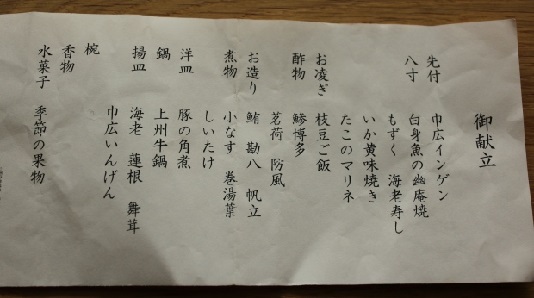 御献立
先付 巾広インゲン
八寸 白身魚の幽庵焼
もずく 海老寿し
いか黄味焼き
たこのマリネ
お凌ぎ 枝豆ご飯
酢物 鯵博多
茗荷 防風
お造り 鮪 勘八 帆立
煮物 小なす 巻湯葉
しいたけ
洋皿 豚の角煮
鍋 上州牛鍋
揚皿 海老 蓮根 舞茸
巾広いんげん
椀
香物
水菓子 季節の果物